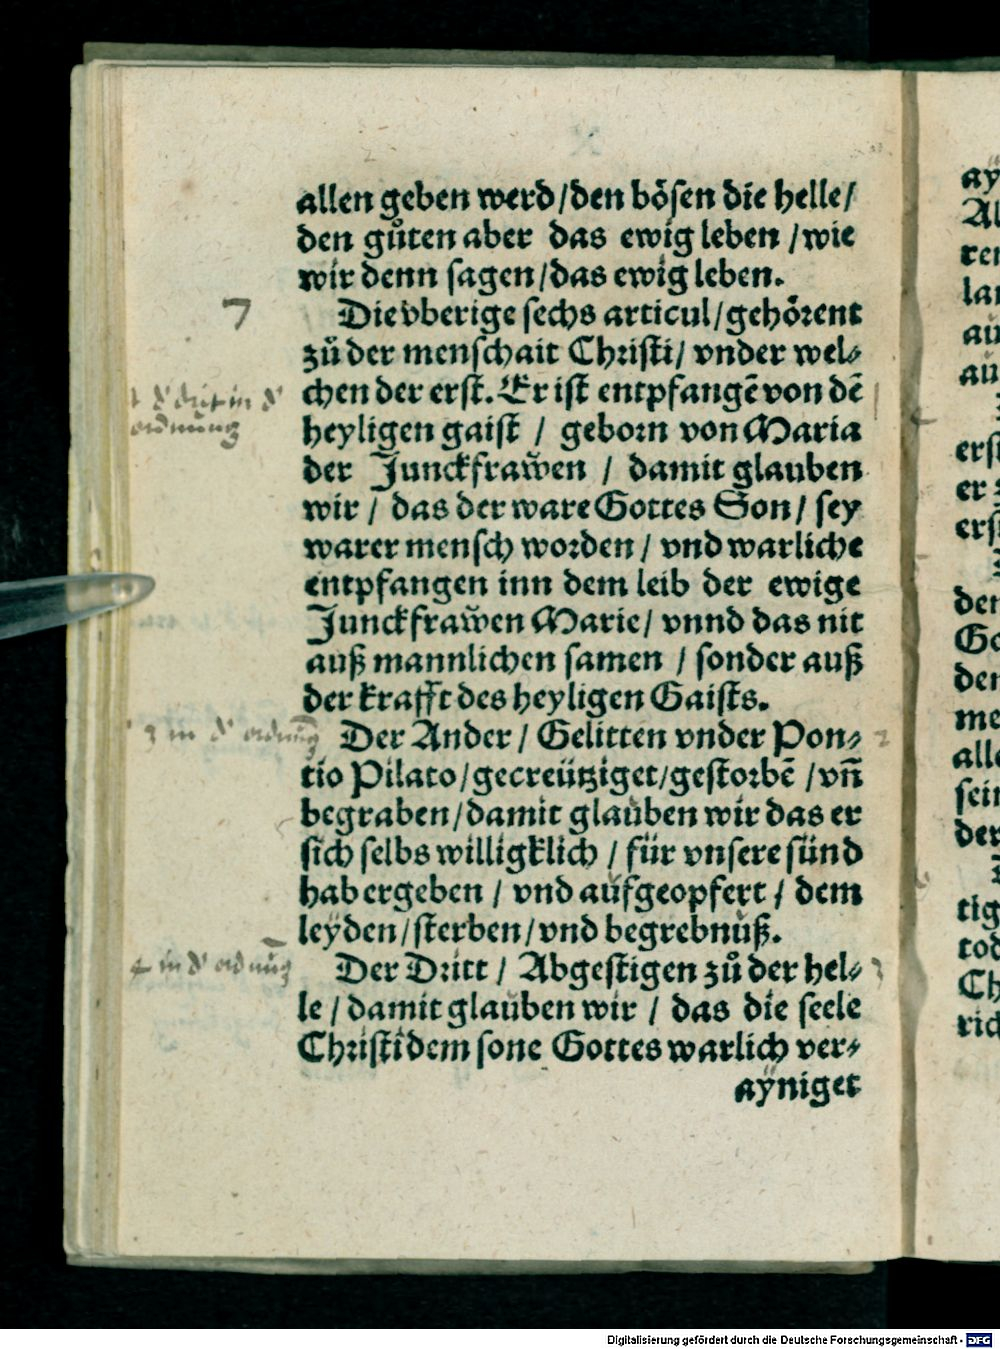 allen geben werd/den bösen die helle/
den gůten aber das ewig leben /wie
wir denn sagen/das ewig leben.
7
Die vberige sechs articul/gehörent
zů der menschait Christi/ vnder wel⸗
chen der erst. Er ist entpfangẽ von dẽ
heyligen gaist / geborn von Maria
der Junckfraẅen / damit glauben
wir / das der ware Gottes Son/ sey
warer mensch worden / vnd warliche
entpfangen inn dem leib der ewige
Junckfraẅen Marie/ vnnd das nit
auß mannlichen samen / sonder auß
der krafft des heyligen Gaists.
3 in d' ordnũg
Der Ander / Gelitten vnder Pon⸗
2
tio Pilato/gecreütziget/gestorbẽ /vñ
begraben/damit glauben wir das er
sich selbs willigklich / für vnsere sünd
hab ergeben / vnd aufgeopfert / dem
leyden/sterben/vnd begrebnuß.
4 in d' ordnũg
Der Dritt / Abgestigen zů der hel⸗
3
le / damit glauben wir / das die seele
Christi dem sone Gottes warlich ver⸗
aÿniget
aÿ
Al
ren
lan
au
au
erst
er
ers
den
Go
den
me
alle
sein
der
tig
tod
Ch
rich
Digitalisierung gefördert durch die Deutsche Forschungsgemeinschaft - DFG